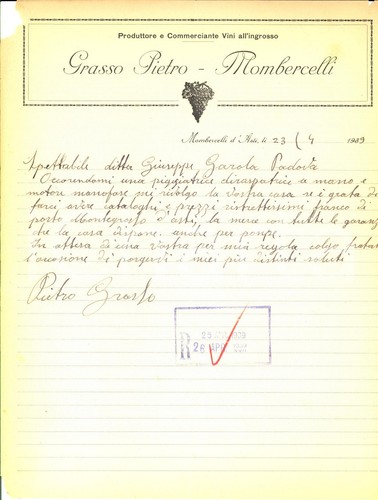 Produttore e Commerciante Vini all'ingrosso
Grasso Pietro - Mombercelli
Mombercelli d'Asti, li 23 / 4 1939
Spettabile ditta Giuseppe Garola Padova
Occorendomi una pigiatrice diraspatrice a mano e
motore monofase mi rivolgo la vostra casa se è grata di
farci avere cataloghi e prezzi ristrettissimi franco di
porto Montegrosso d'asti, la merce con tutte le garanzie
che la casa dispone. anche per pompe.
In attesa di una vostra per mia regola colgo
l'occasione di porgervi i miei più distinti saluti
Pietro Grasso
R